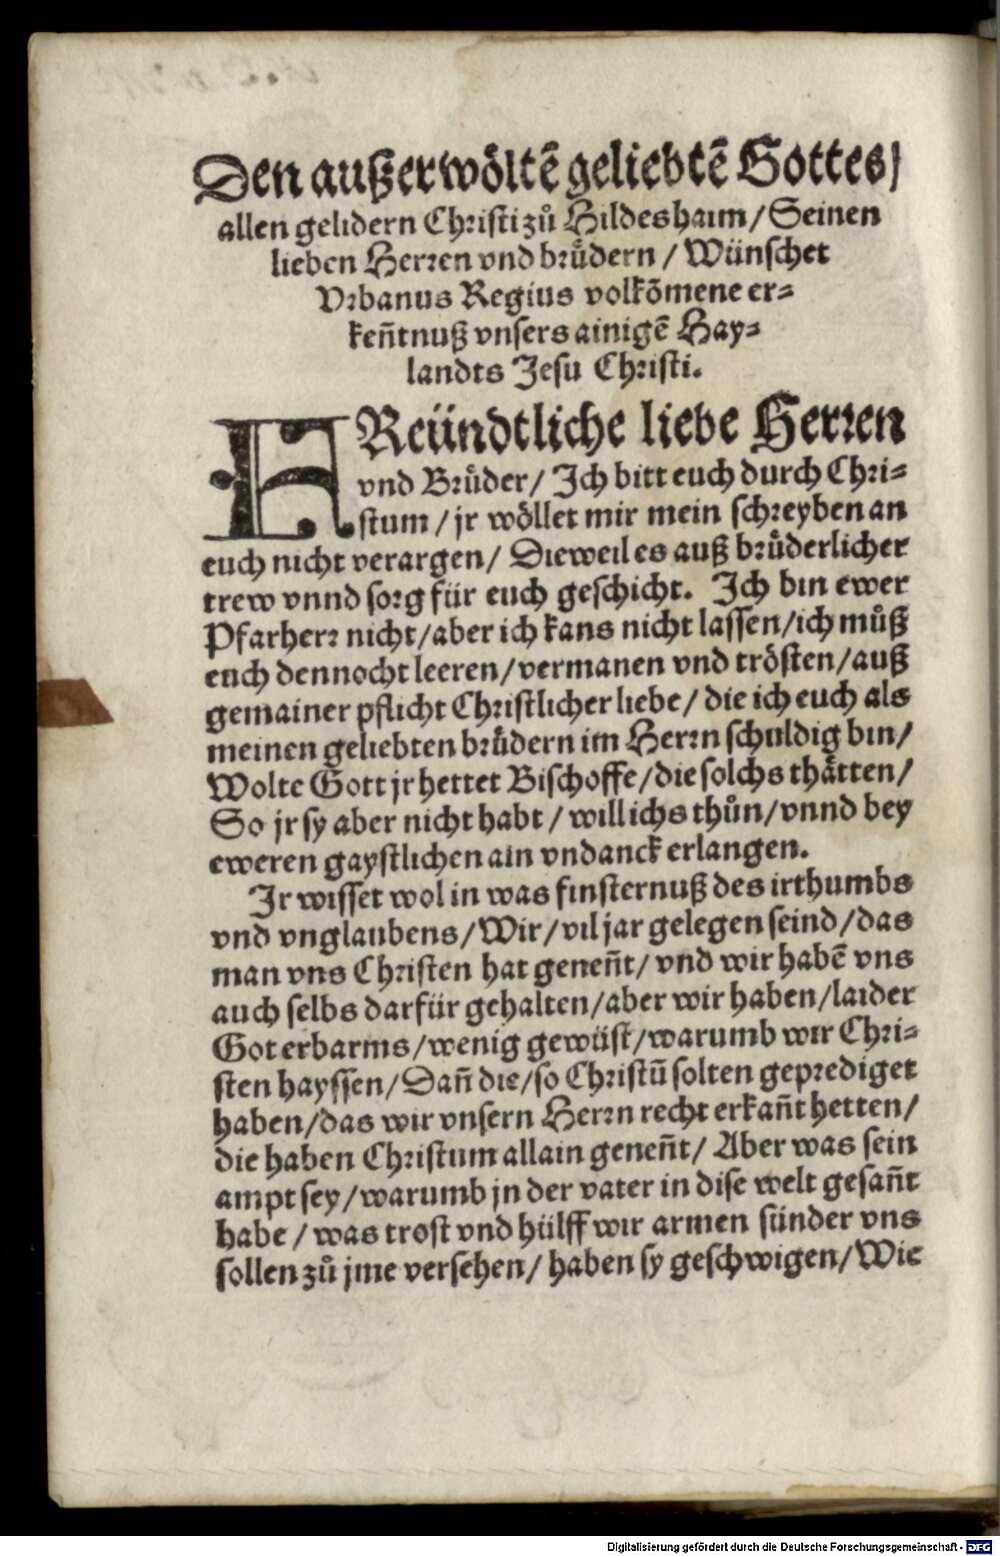 Den außerwoͤltē geliebtē Gottes/
allen gelidern Christi zuͦ Hildeshaim/ Seinen
lieben Herꝛen vnd bruͤdern / Wünschet
Vrbanus Regius volkōmene er⸗
keñtnuß vnsers ainigē Hay⸗
landts Jesu Christi.
FReündtliche liebe Herꝛen
vnd Bruͤder/ Ich bitt euch durch Chri⸗
stum / jr woͤllet mir mein schreyben an
euch nicht verargen/ Dieweil es auß bruͤderlicher
trew vnnd sorg für euch geschicht. Ich bin ewer
Pfarherꝛ nicht/aber ich kans nicht lassen/ich muͦß
euch dennocht leeren/vermanen vnd troͤsten/auß
gemainer pflicht Christlicher liebe/ die ich euch als
meinen geliebten bruͤdern im Herꝛn schuldig bin/
Wolte Gott jr hettet Bischoffe/die solchs thaͤtten/
So jr sy aber nicht habt / will ichs thuͦn/vnnd bey
eweren gaystlichen ain vndanck erlangen.
Ir wisset wol in was finsternuß des irthumbs
vnd vnglaubens/Wir/vil jar gelegen seind/das
man vns Christen hat geneñt/ vnd wir habē vns
auch selbs darfür gehalten/aber wir haben/laider
Got erbarms/wenig gewüst/warumb wir Chri⸗
sten hayssen/Dañ die/so Christū solten geprediget
haben/das wir vnsern Herꝛn recht erkañt hetten/
die haben Christum allain geneñt/ Aber was sein
ampt sey/warumb jn der vater in dise welt gesañt
habe / was trost vnd hülff wir armen sünder vns
sollen zuͦ jme versehen/ haben sy geschwigen/Wie
Digitalisierung gefördert durch die Deutsche Forschungsgemeinschaft - DFG